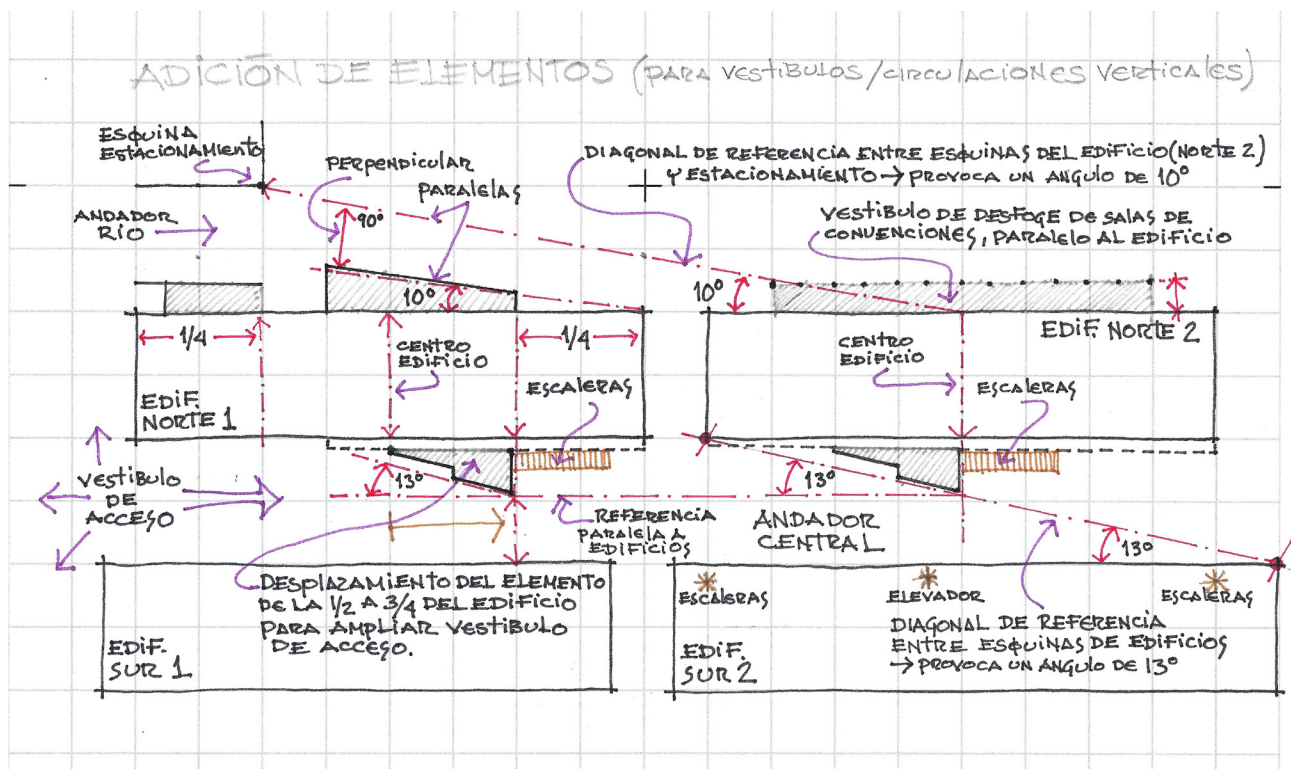 ADICIÓN DE ELEMENTOS (PARA VESTIBULOS/CIRCULACIONES VERTICALES)
ESQUINA
ESTACIONAMIENTO
PERPENDICULAR
PARALELAS
DIAGONAL DE REFERENCIA ENTRE ESQUINAS DEL EDIFICIO (NORTE 2)
Y ESTACIONAMIENTO → PROVOCA UN ANGULO DE 10°
ANDADOR
RÍO
90°
VESTIBULO DE DESFOGE DE SALAS DE
CONVENCIONES, PARALELO AL EDIFICIO
10°
10°
1/4
CENTRO
EDIFICIO
1/4
EDIF. NORTE 2
CENTRO
EDIFICIO
ESCALERAS
ESCALERAS
EDIF.
NORTE 1
VESTIBULO
DE
ACCESO
13°
13°
REFERENCIA
PARALELA A
EDIFICIOS
ANDADOR
CENTRAL
13°
DESPLAZAMIENTO DEL ELEMENTO
DE LA 1/2 A 3/4 DEL EDIFICIO
PARA AMPLIAR VESTIBULO
DE ACCESO.
EDIF.
SUR 1
ESCALERAS
ELEVADOR
ESCALERAS
DIAGONAL DE REFERENCIA
ENTRE ESQUINAS DE EDIFICIOS
→ PROVOCA UN ANGULO DE 13°
EDIF.
SUR 2